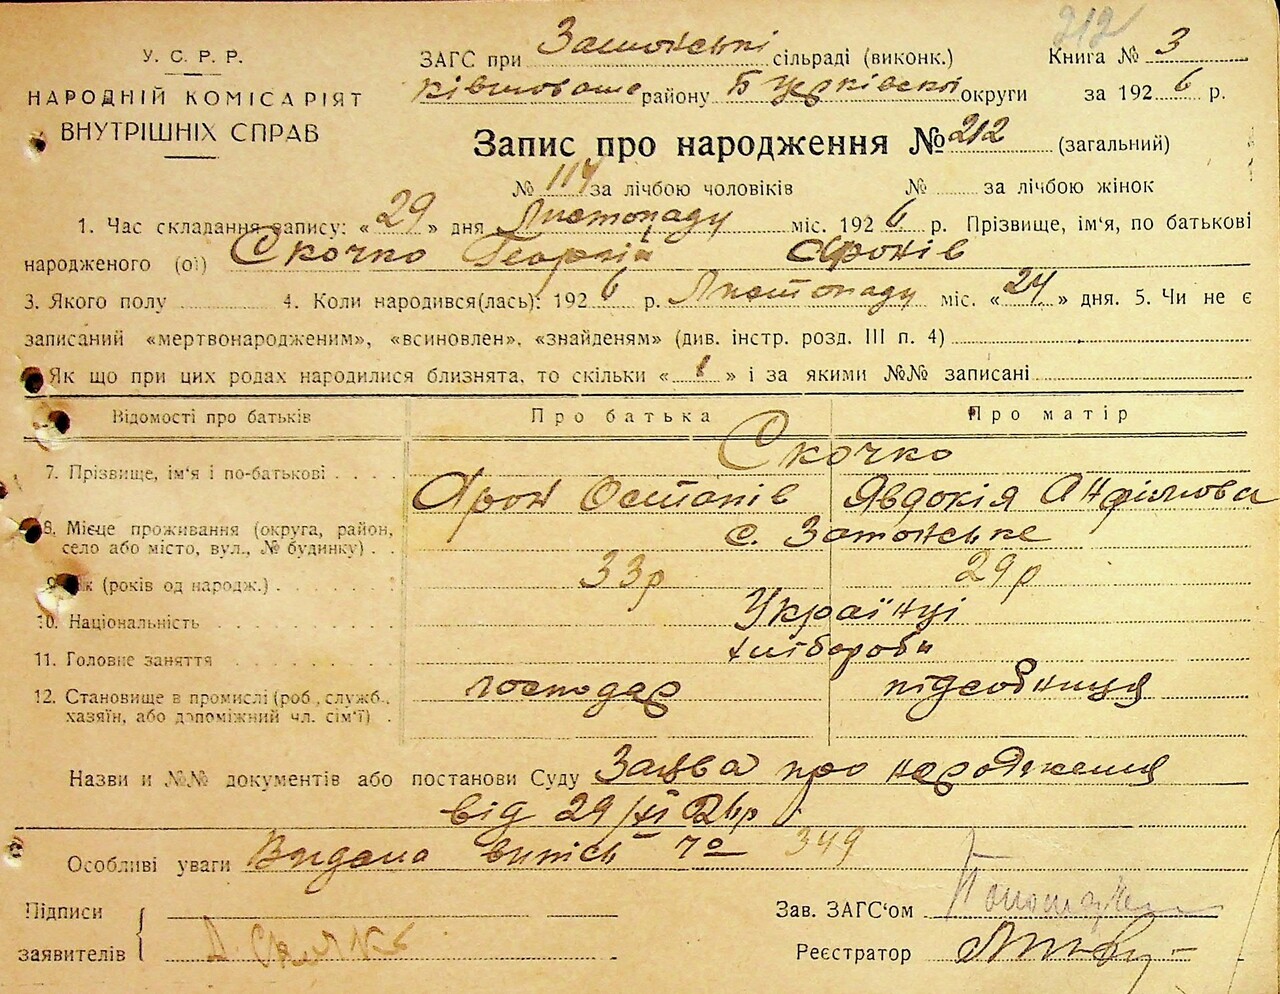 212
У. С. Р. Р.
НАРОДНІЙ КОМІСАРІЯТ
ВНУТРІШНІХ СПРАВ
ЗАГС при Затонські сільраді (виконк.) Книга № 3
району Б Церківської округи за 1926 р.
Запис про народження № 212 (загальний)
№ 114 за лічбою чоловіків № за лічбою жінок
1. Час складання запису: «29» дня Листопаду міс. 1926 р. Прізвище, ім'я, по батькові
народженого (ої) Скочко Георгій Яронів
3. Якого полу 4. Коли народився(лась): 1926 р. Листопаду міс. «24» дня. 5. Чи не є
записаний «мертвонародженим», «всиновлен», «знайденям» (див. інстр. розд. III п. 4)
Як що при цих родах народилися близнята, то скільки «1» і за якими №№ записані
Відомості про батьків Про батька Про матір
7. Прізвище, ім'я і по-батькові Скочко
Ярон Остапів Явдокія
8. Місце проживання (округа, район, село або місто, вул., № будинку) с. Затонське
(років од народж.) 33р 29р
10. Національність Українці
11. Головне заняття хлібороби
12. Становище в промислі (роб., служб., господар підсобниця
хазяїн, або допоміжний чл. сім'ї)
Назви и №№ документів або постанови Суду Заява про народження
від 29/XI 26р
Особливі уваги Видана випись 349
Підписи
заявителів
Зав. ЗАГС'ом
Реєстратор